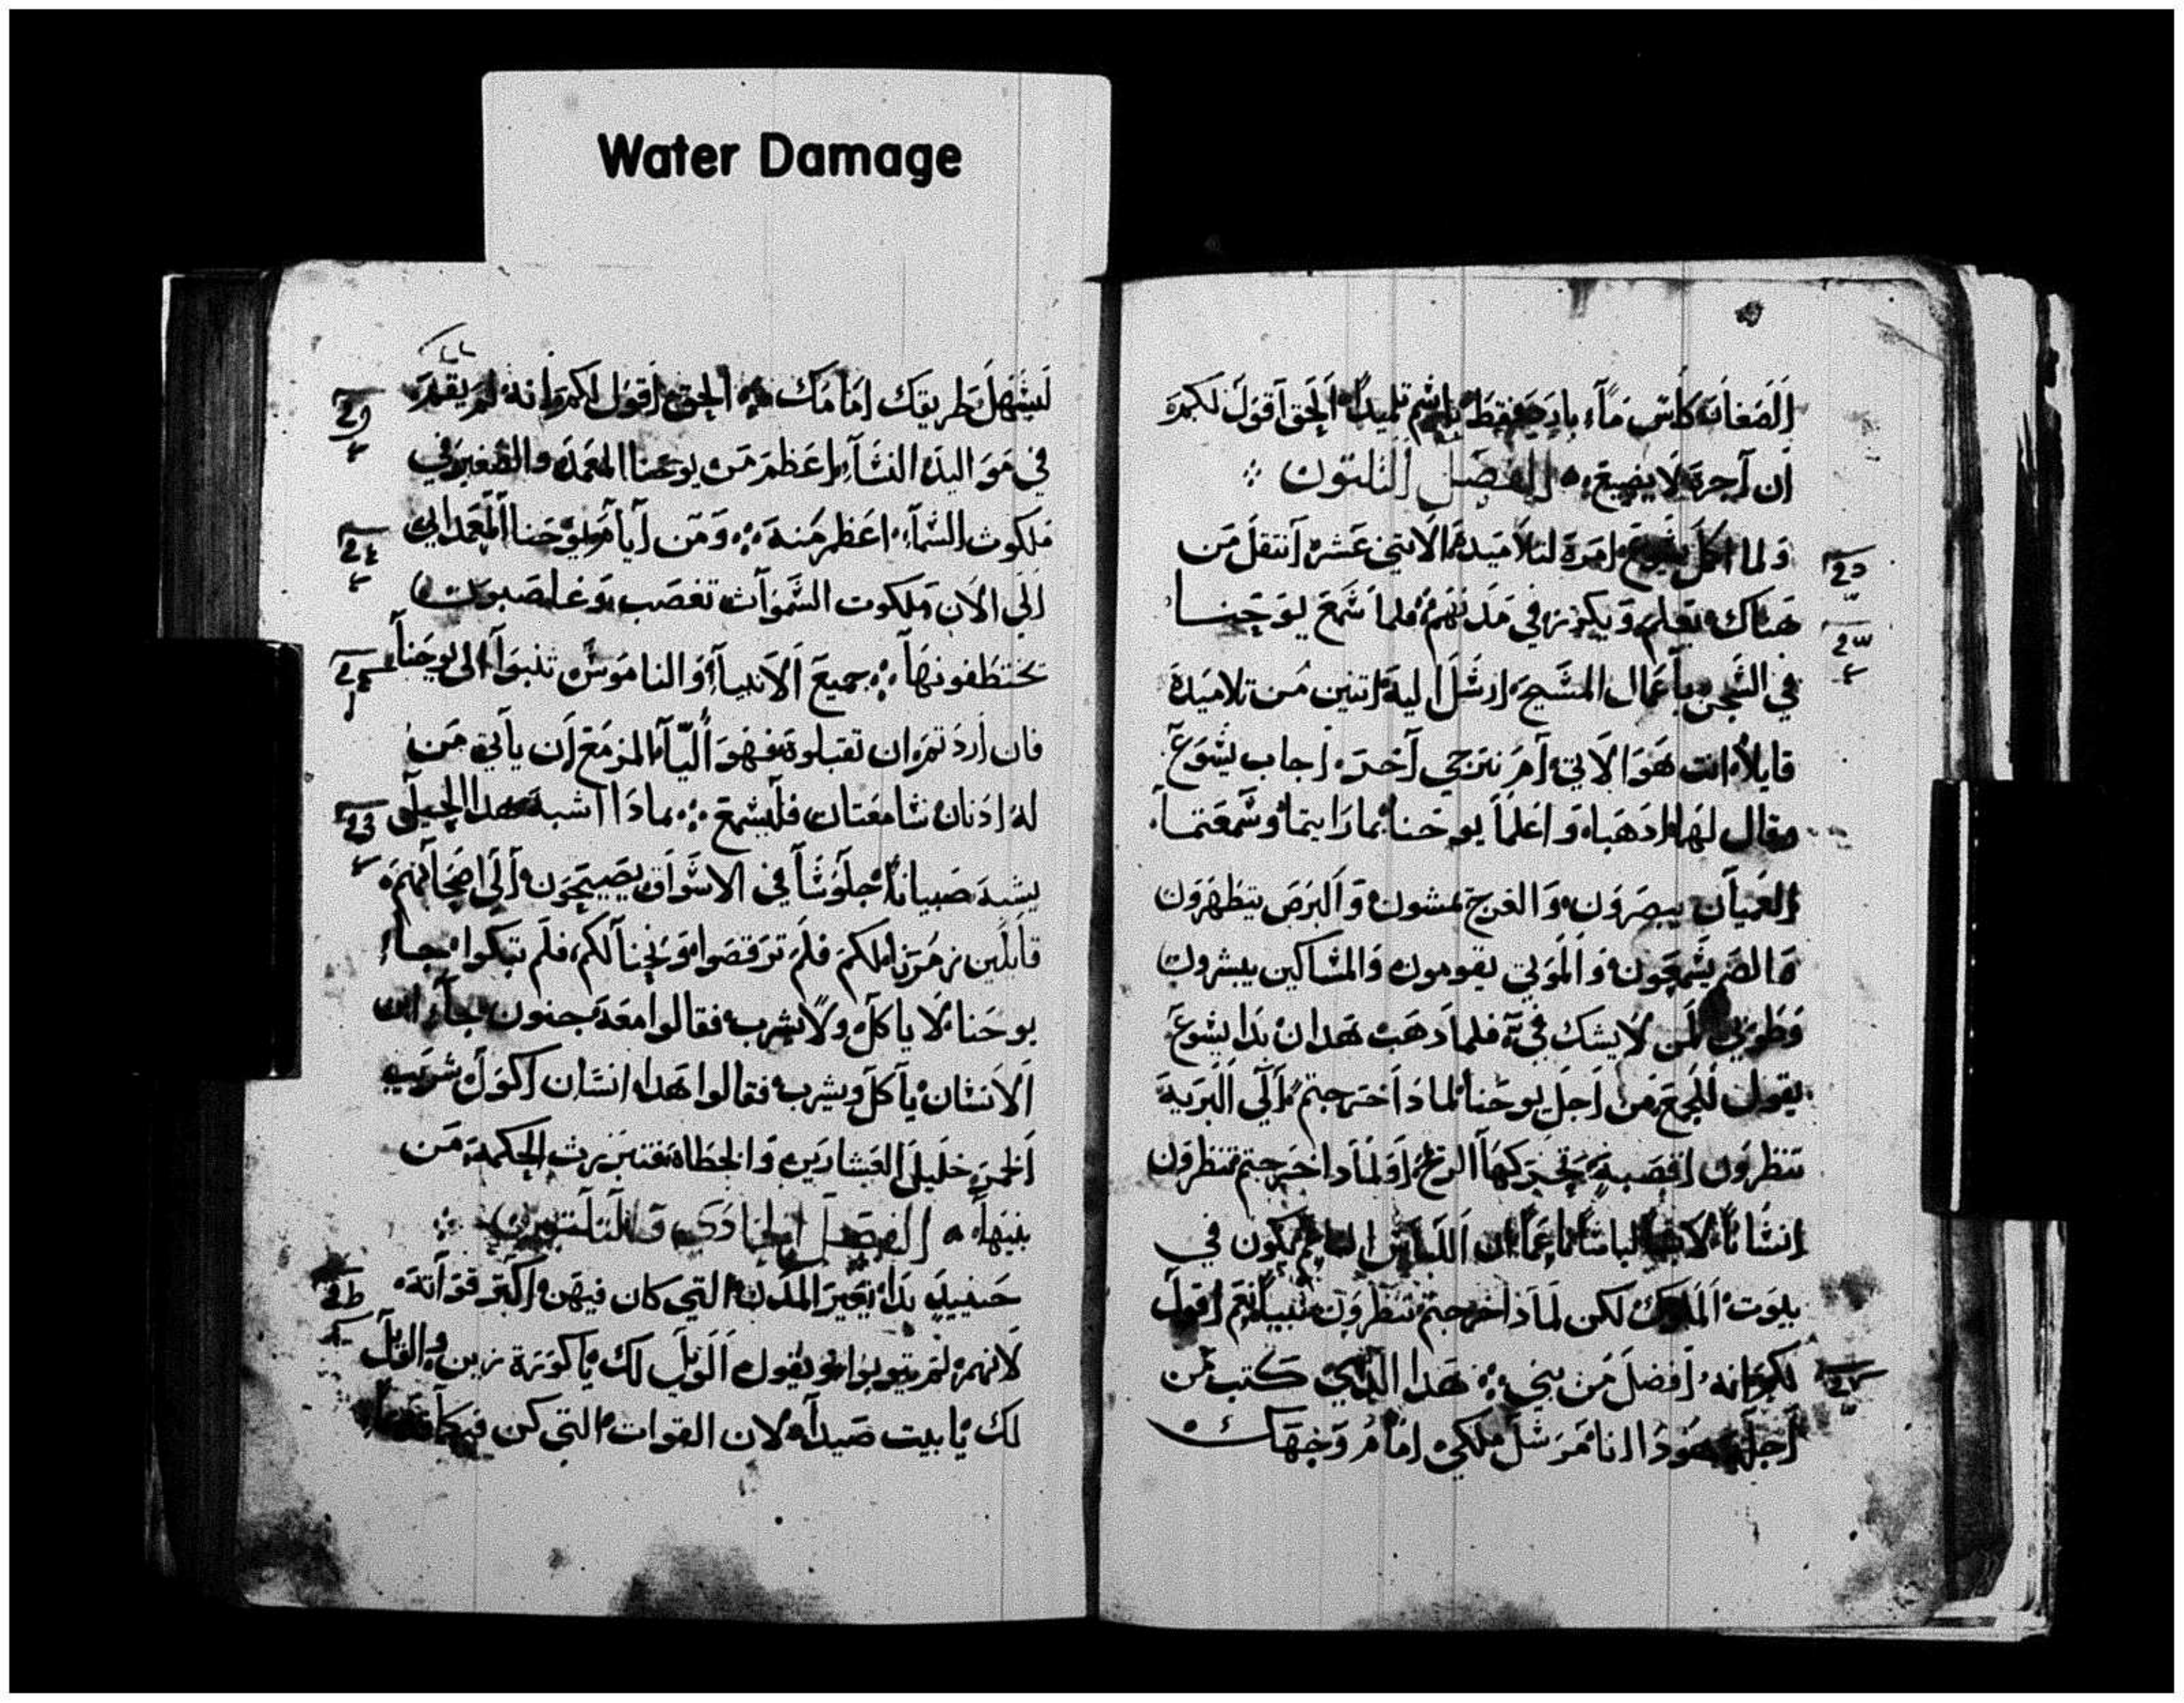 Water Damage
الصغار كاس ماء بارد فقط باسم تلميدا الحق اقول لكم
ان اجره لا يضيع الفصل الثلثون
ولما اكمل يشوع امره لتلاميده الاثني عشر انتقل من
هناك يعلم ويكرز في مدنهم فلما سمع يوحنا
في السجن باعمال المسيح ارسل اليه اتنين من تلاميده
قايلا انت هو الاتي ام نترجي اخر اجاب يشوع
وقال لهما ادهبا واعلما يوحنا بما رايتما وسمعتما
العميان يبصرون والعرج يمشون والبرص يتطهرون
والصم يسمعون والموتي يقومون والمساكين يبشرون
وطوبي لمن لا يشك في فلما دهب هدان بدا يشوع
يقول للجمع من اجل يوحنا لمادا خرجتم الي البرية
تنظرون اقصبة تحركها الريح او لمادا خرجتم تنظرون
انسانا لابسا لباسا ناعما ان اللباس الناعم يكون في
بيوت الملوك لكن لمادا خرجتم تنظرون نبيا نعم اقول
لكم انه افضل من نبي هدا الدي كتب من
اجله هودا انا مرسل ملكي امام وجهك
ليسهل طريقك امامك الحق اقول لكم انه لم يقم
في مواليد النساء اعظم من يوحنا المعمد والصغير في
ملكوت السماء اعظم منه ومن ايام يوحنا المعمدان
الي الان ملكوت السموات تغصب وغاصبون
تختطفونها جميع الانبياء والناموس تنبوا الى يوحنا
فان اردتم ان تقبلوه فهو اليا المزمع ان ياتي من
له ادنان سامعتان فليسمع بمادا اشبه هدا الجيل
يشبه صبيانا جلوسا في الاسواق يصيحون الي اصحابهم
قايلين زمرنا لكم فلم ترقصوا ونحنا لكم فلم تبكوا جاء
يوحنا لا ياكل ولا يشرب فقالوا معه جنون جاء ابن
الانسان ياكل ويشرب فقالوا هدا انسان اكول شريب
الخمر خليل العشارين والخطاة فتبررت الحكمة من
بنيها الفصل الحادي والثلثون
حينيد بدا يعير المدن التي كان فيهن اكتر قواته
لانهم لم يتوبوا ويقول الويل لك يا كورزين والويل
لك يا بيت صيدا لان القوات التي كن فيكما